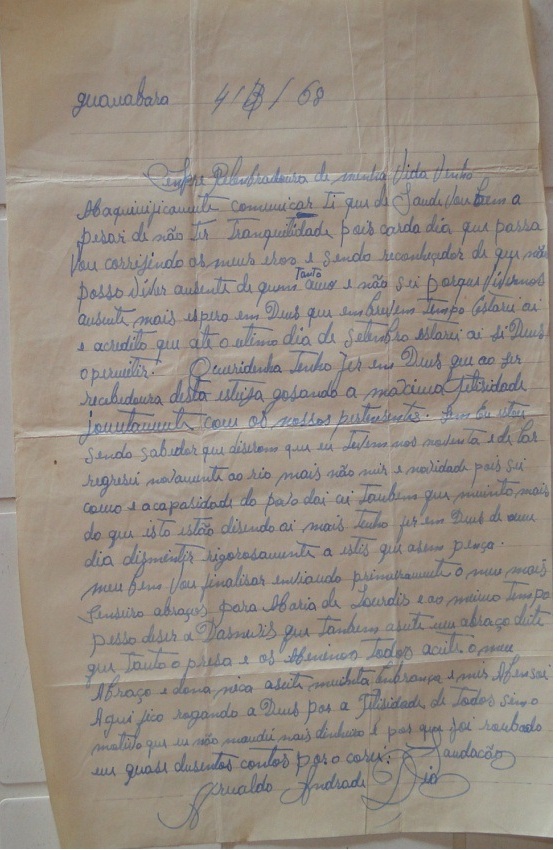 guanabara 4/8/68
Sempre Relembradoura de minha Vida Venho
Abaquinificamente comunicar Ti que de Saude Vou bem a
pesar de não Ter Tranquilidade pois carda dia que parra
Vou corrijindo os meus eros e sendo reconhecedor de que não
posso Viver ausente de quem Tanto amo e não sei porque Vivemos
ausente mais espero em Deus que em brevem Tempo Estarei ai
e acredito que até o utimo dia de Setembro estarei ai si Deus
o permitir. Queridinha Tenho fer em Deus que ao ser
recebedoura desta esteija gosando a maxima felisidade
jountamente com os nossos pertensentes. Bem Eu estou
Sendo sabedor que diserom que eu estivem nos noventa e de lar
regresei novamente ao rio mais não mir e novidade pois sei
como e acapasidade do povo dai ai Tambem que muinto mais
do que isto estão disendo ai mais Tenho fer em Deus de um
dia dismentir rigorosamente a estis que asem pença.
meu bem Vou finalisar enviando primeramente o meu mais
Senseiro abraços para Maria de Lourdis e ao mesmo Tempo
pesso diser a que tambem aseite um abraço deste
que tanto o presa e os Meninos Todos aceite o meu
Abraço e dona nica aseite muinta lembrança e mis Abensoi
Aqui fico rogando a Deus por a Felisidade de Todos
motivo que eu não mandei mais dinheiro e por que foi roubado
em quase dusentos contos por o Saudacão
Arnaldo Andrade Dia